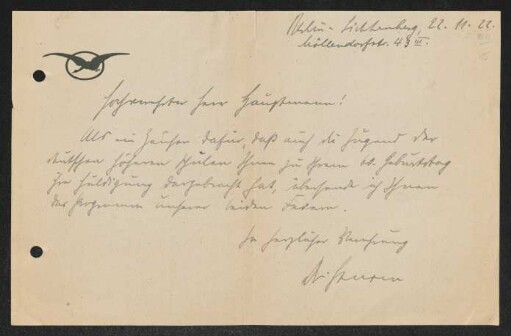 Berlin-Lichtenberg, 22.11.22.
Möllendorfstr. 43 III.
Hochverehrter Herr Hauptmann!
Als ein Zeichen dafür, daß auch die Jugend der
deutschen höheren Schulen Ihnen zu Ihrem 60. Geburtstag
Ihre Huldigung dargebracht hat, übersende ich Ihnen
das Programm unserer beiden Feiern.
In herzlicher Verehrung